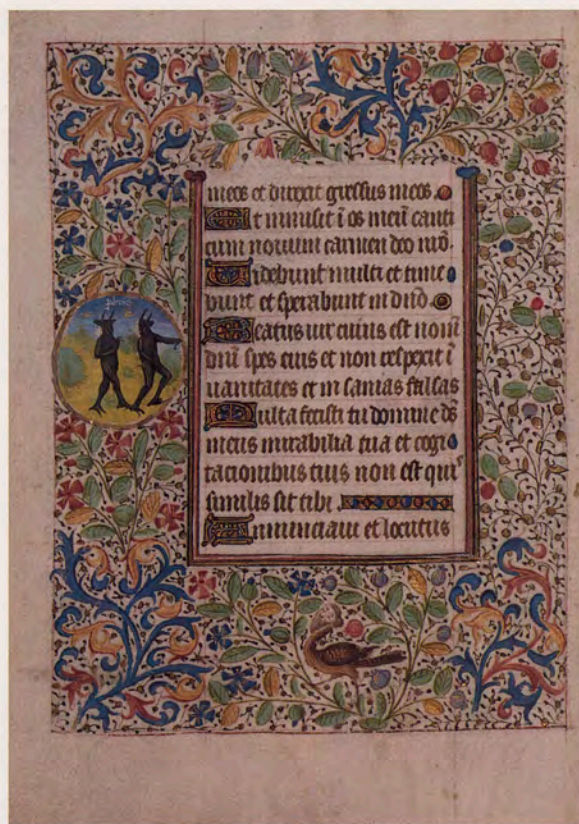 meos et direxit gressus meos.
Et inmisit i os meū canti
cum novum carmen deo nr̄o.
Videbunt multi et time
bunt et sperabunt in dn̄o.
Beatus vir cuius est nom̄
dn̄i spes eius et non respexit i
vanitates et in sanias falsas
Multa fecisti tu domine ds̄
meus mirabilia tua et cogi
tacionibus tuis non est qui
similis sit tibi.
Annunciavi et locutus